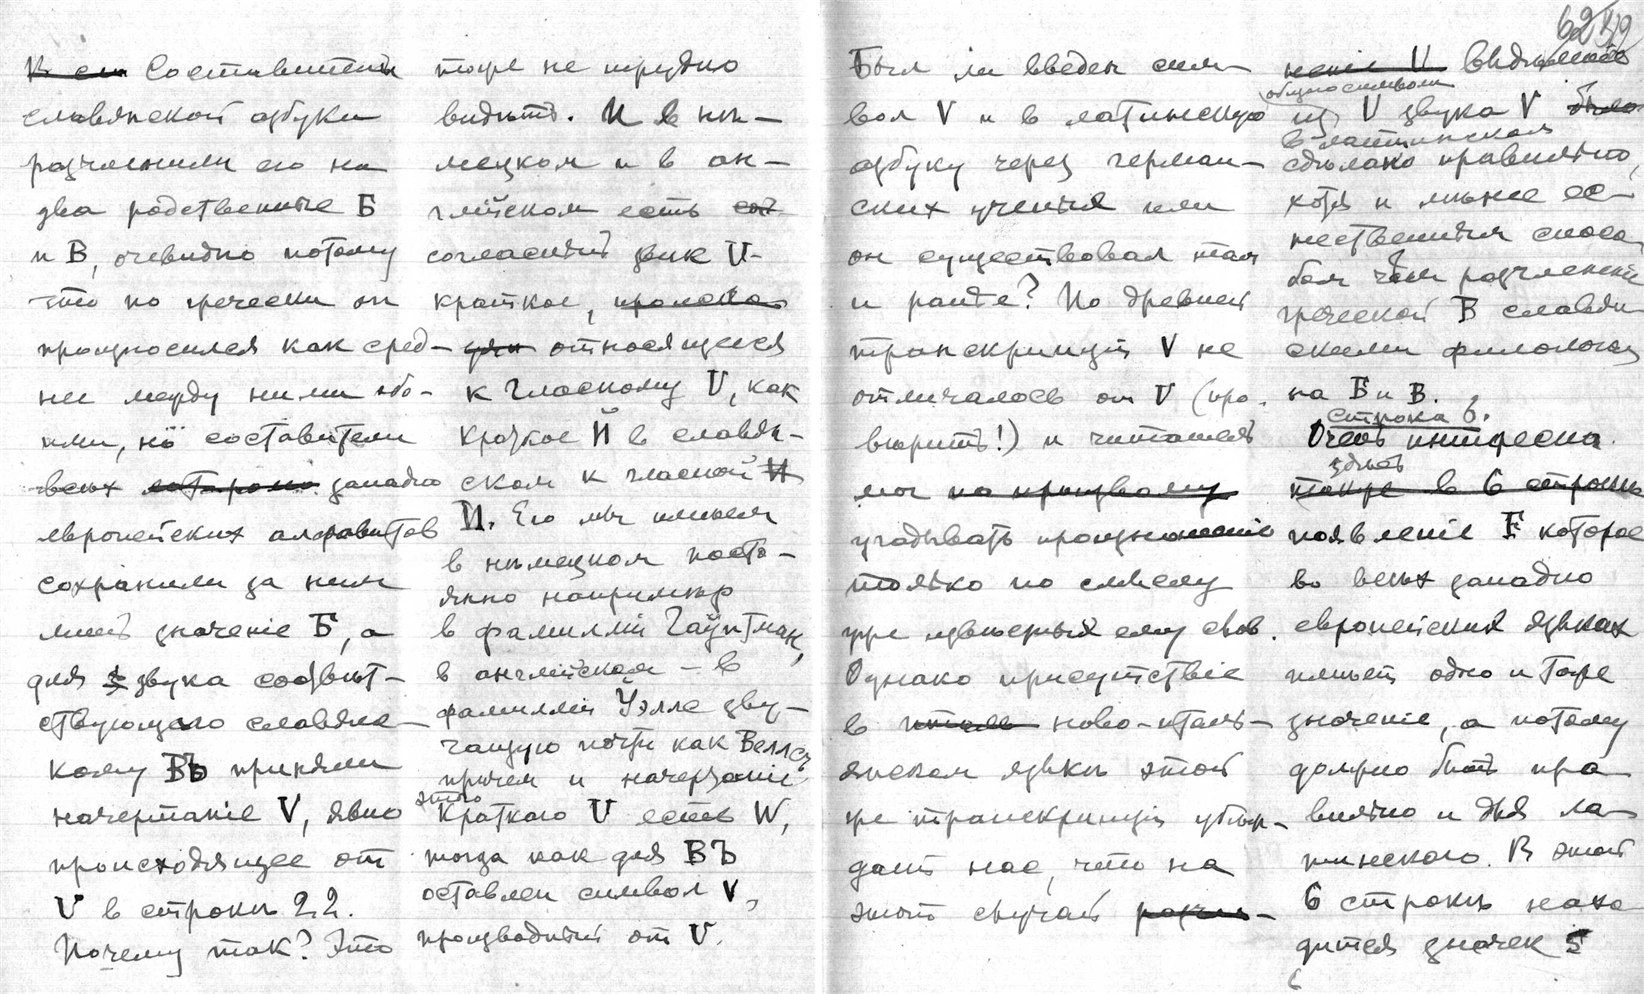 Составители
славянской азбуки
расчленили его на
два родственные Б
и В, очевидно потому
что по гречески он
произносился как сред-
нее между ними обо-
ими, но составители
всѣх западно
европейских алфавитов
сохранили за ним
лишь значеніе Б, а
для звука соотвѣт-
ствующаго славянс-
кому ВЪ приняли
начертаніе V, явно
происходящее от
U в строкѣ 22.
Почему так? Это
тоже не трудно
видѣть. И в нѣ-
мецком и в ан-
глійском есть
согласный звук U-
краткое,
относящееся
к гласному U, как
краткое Й в славян-
ском к гласной И
И. Его мы имѣем
в нѣмецком посто-
янно напримѣр
в фамиліи Гаўптман,
в англійском – в
фамиліи Ўэллс зву-
чащую почти как Веллсъ
причем и начертаніе
этого
краткаго U есть W,
тогда как для ВЪ
оставлен символ V,
производный от U.
Был ли введен сим-
вол V и в латинскую
азбуку через герман-
ских ученых или
он существовал там
и ранѣе? По древней
транскрипціи V не
отличалось от U (про-
вѣрить!) и читатель
мог
угадывать произношеніе
только по смыслу
уже извѣстных ему слов.
Однако присутствіе
в ново-италь-
янском языкѣ этой
же транскрипціи убѣж-
дает нас, что на
этот случай
62
выдѣленіе
общаго символа
из U звука V
в латинском
сдѣлано правильно,
хотя и менѣе ес-
тественным спосо-
бом чѣм расчлененіе
греческой В славян-
скими филологами
на Б и В.
строка 6.
Очень интересно
здѣсь
появленіе F которое
во всѣх западно
европейских языках
имѣет одно и тоже
значеніе, а потому
должно быть пра-
вильно и для ла-
тинскаго. В этой
6 строкѣ нахо-
дится значек 5